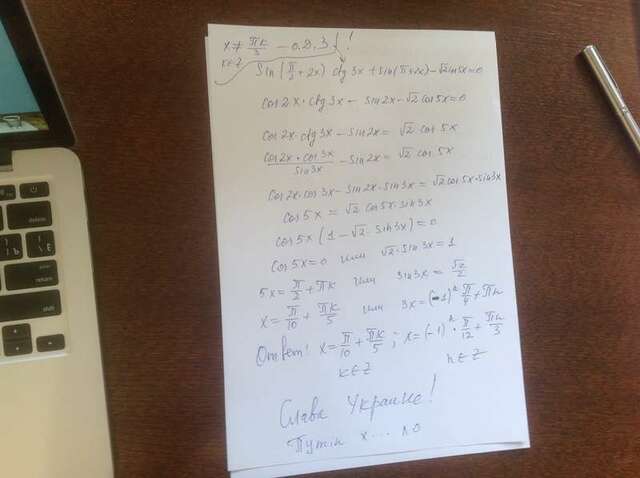 x ≠ πk/3 – О.Д.З.!
k∈Z
sin(π/2 + 2x) ctg 3x + sin(π+2x) – √2 cos 5x = 0
cos 2x · ctg 3x – sin 2x – √2 cos 5x = 0
cos 2x · ctg 3x – sin 2x = √2 cos 5x
cos 2x · cos 3x / sin 3x – sin 2x = √2 cos 5x
cos 2x · cos 3x – sin 2x · sin 3x = √2 cos 5x · sin 3x
cos 5x = √2 cos 5x · sin 3x
cos 5x (1 – √2 · sin 3x) = 0
cos 5x = 0 или √2 · sin 3x = 1
5x = π/2 + πk или sin 3x = √2/2
x = π/10 + πk/5 или 3x = (-1)ⁿ π/4 + πn
Ответ: x = π/10 + πk/5 ; x = (-1)ⁿ · π/12 + πn/3
k∈Z n∈Z
Слава Украине!
Путін х... ло
delete
return
shift